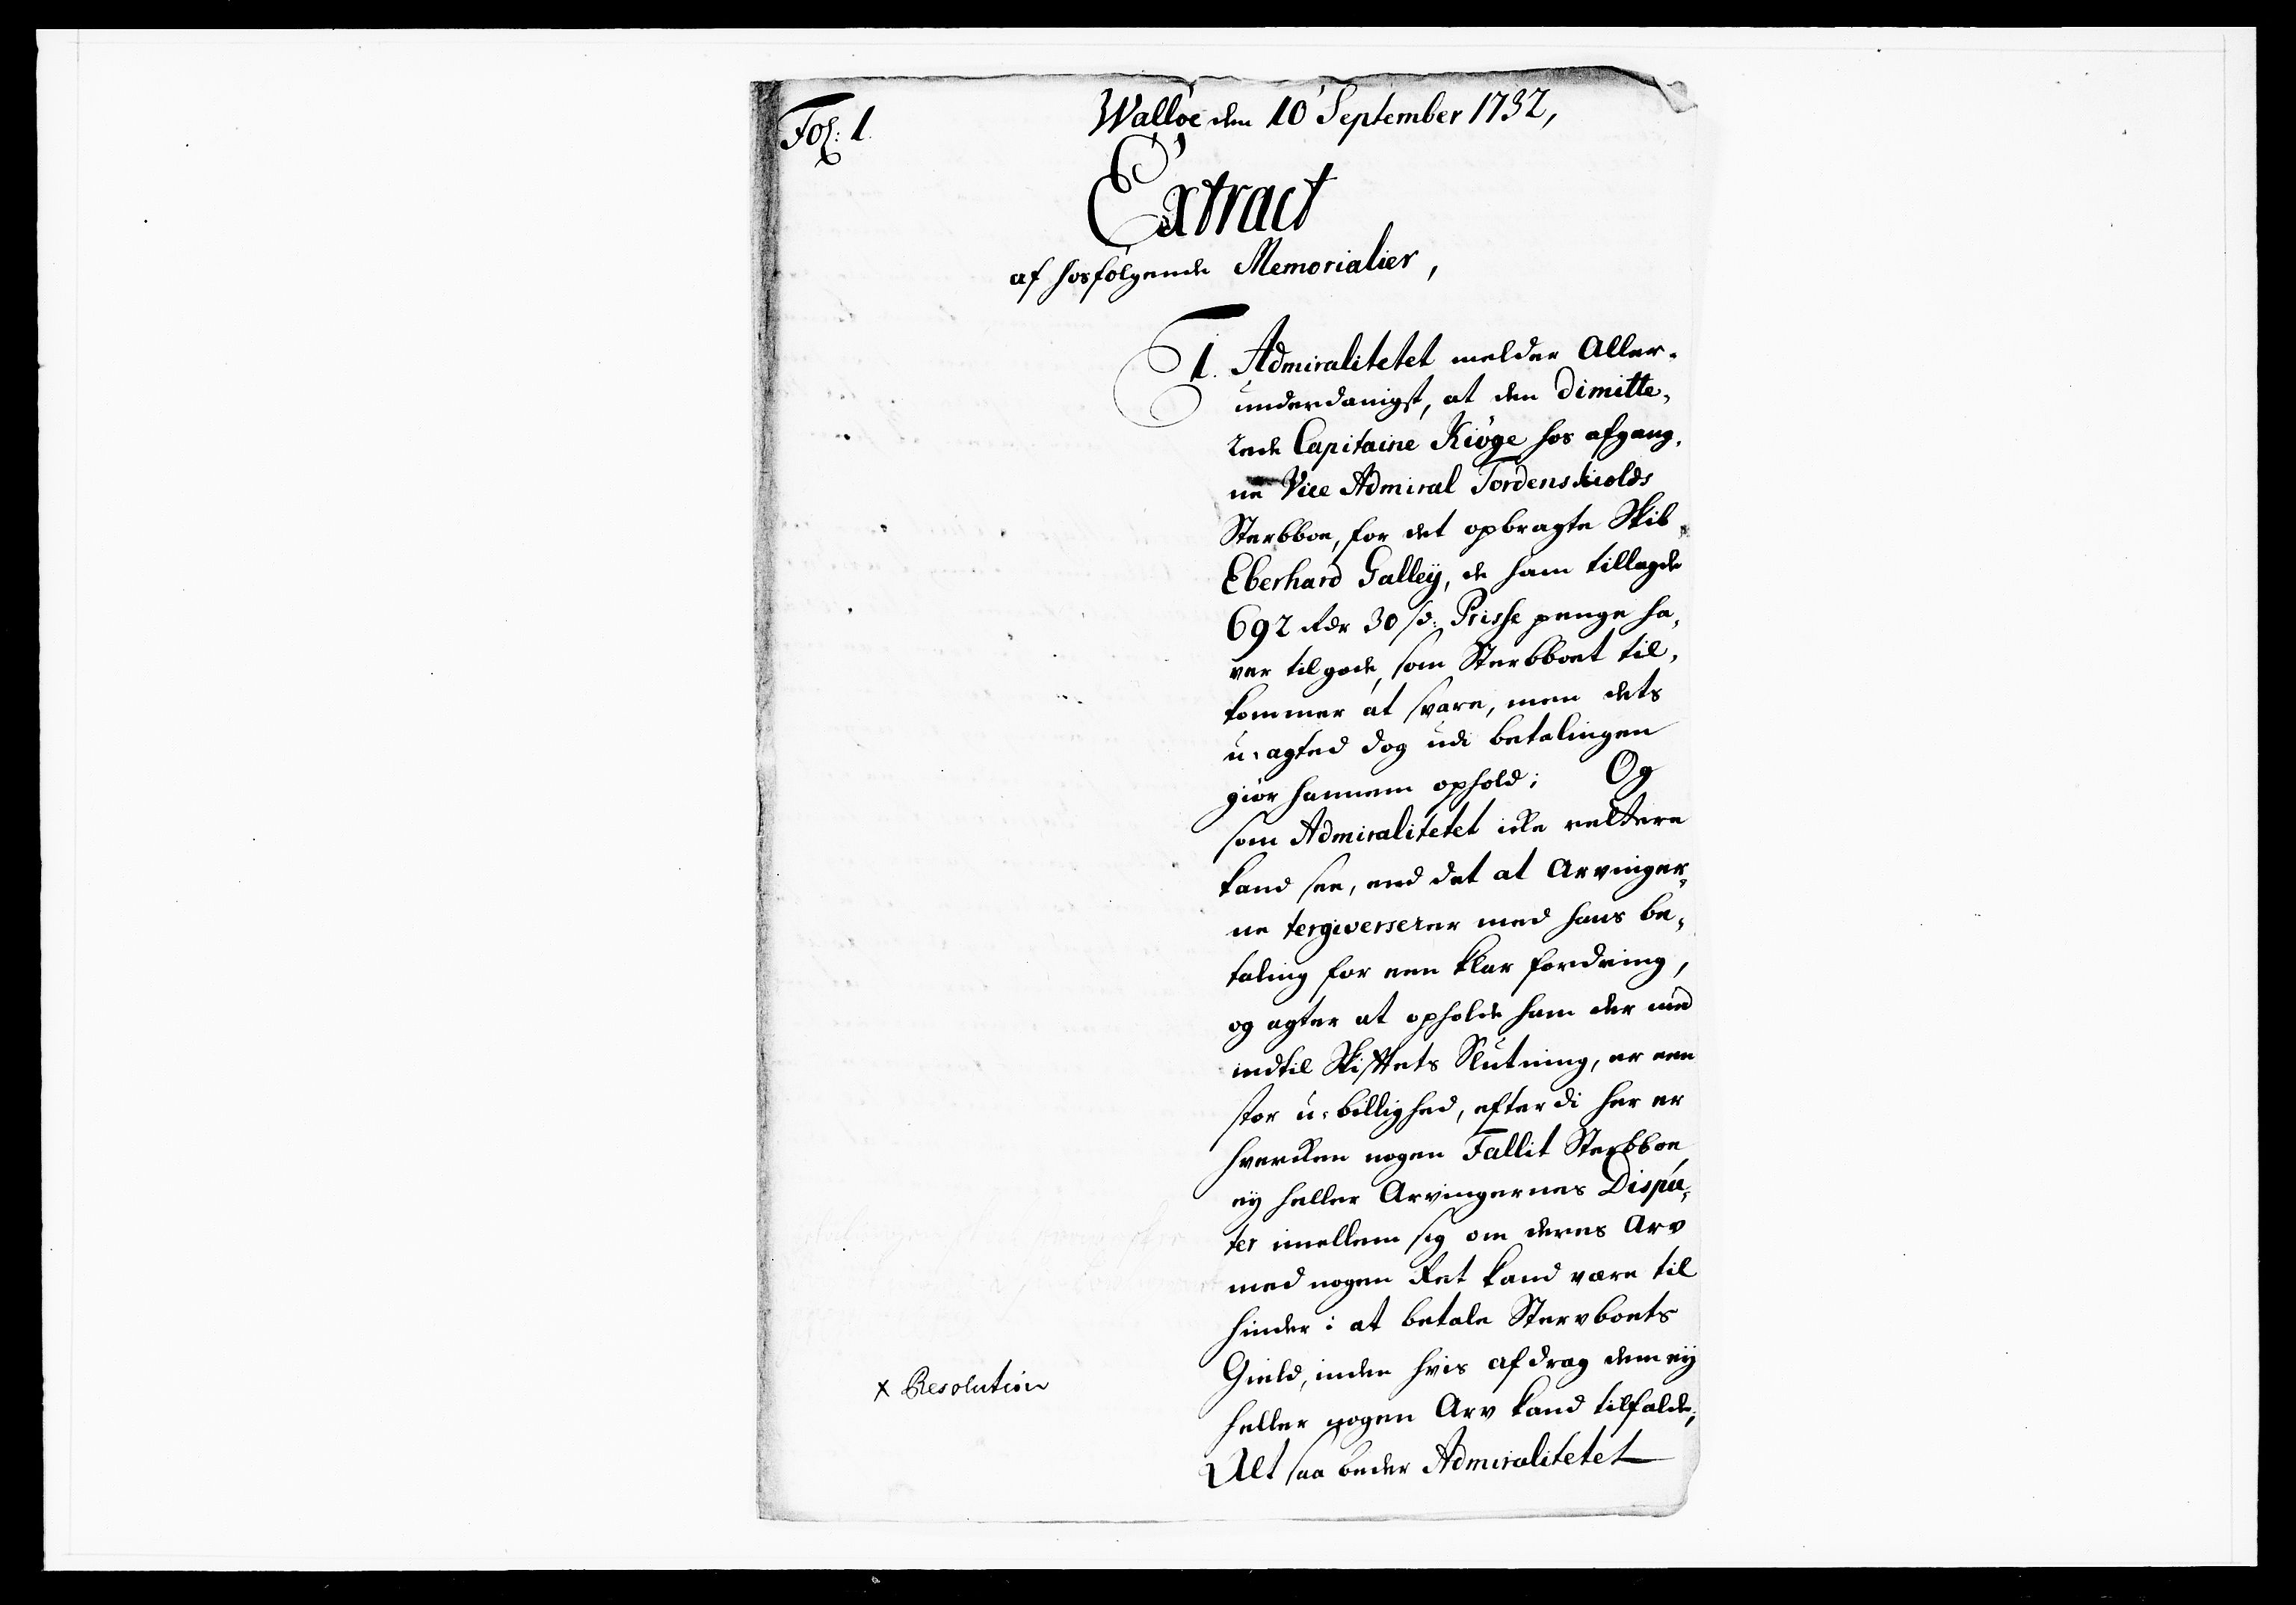 Fol: 1.
Walløe den 10' September 1732,
Extract
af hosfølgende Memorialier,
1. Admiralitetet melder Aller-
underdanigst, at den dimitte-
rede Capitaine Kiøge hos afgang-
ne Vice Admiral Tordenskiolds
Sterbboe, for det opbragte Skib
Eberhard Galleÿ, de ham tillagde
692 Rdr 30 s: Prisse penge ha-
ver tilgode, som Sterbboet til-
kommer at svare, men dets
u-agted dog udi betalingen
giør hannem ophold; Og
som Admiralitetet icke rettere
kand see, end det at Arvinger-
ne tergiverserer med hans be-
taling for een klar fordring,
og agter at opholde ham der med
indtil Skiftets Slutning, er een
stor u-billighed, efterdi her er
hvercken nogen Fallit Sterbboe
eÿ heller Arvingernes Dispu-
ter imellem sig om deres Arv
med nogen Ret kand være til
hinder i at betale Stervboets
Gield, inden hvis afdrag dem eÿ
heller nogen Arv kand tilfalde;
x Resolution
Alt saa beder Admiralitetet